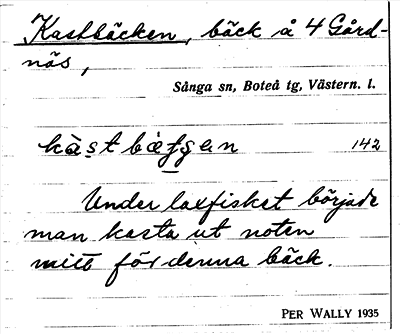 Kastbäcken, bäck å 4 Gård-
näs,
Sånga sn, Boteå tg, Västern. l.
142
Under laxfisket började
man kasta ut noten
mitt för denna bäck.
PER WALLY 1935